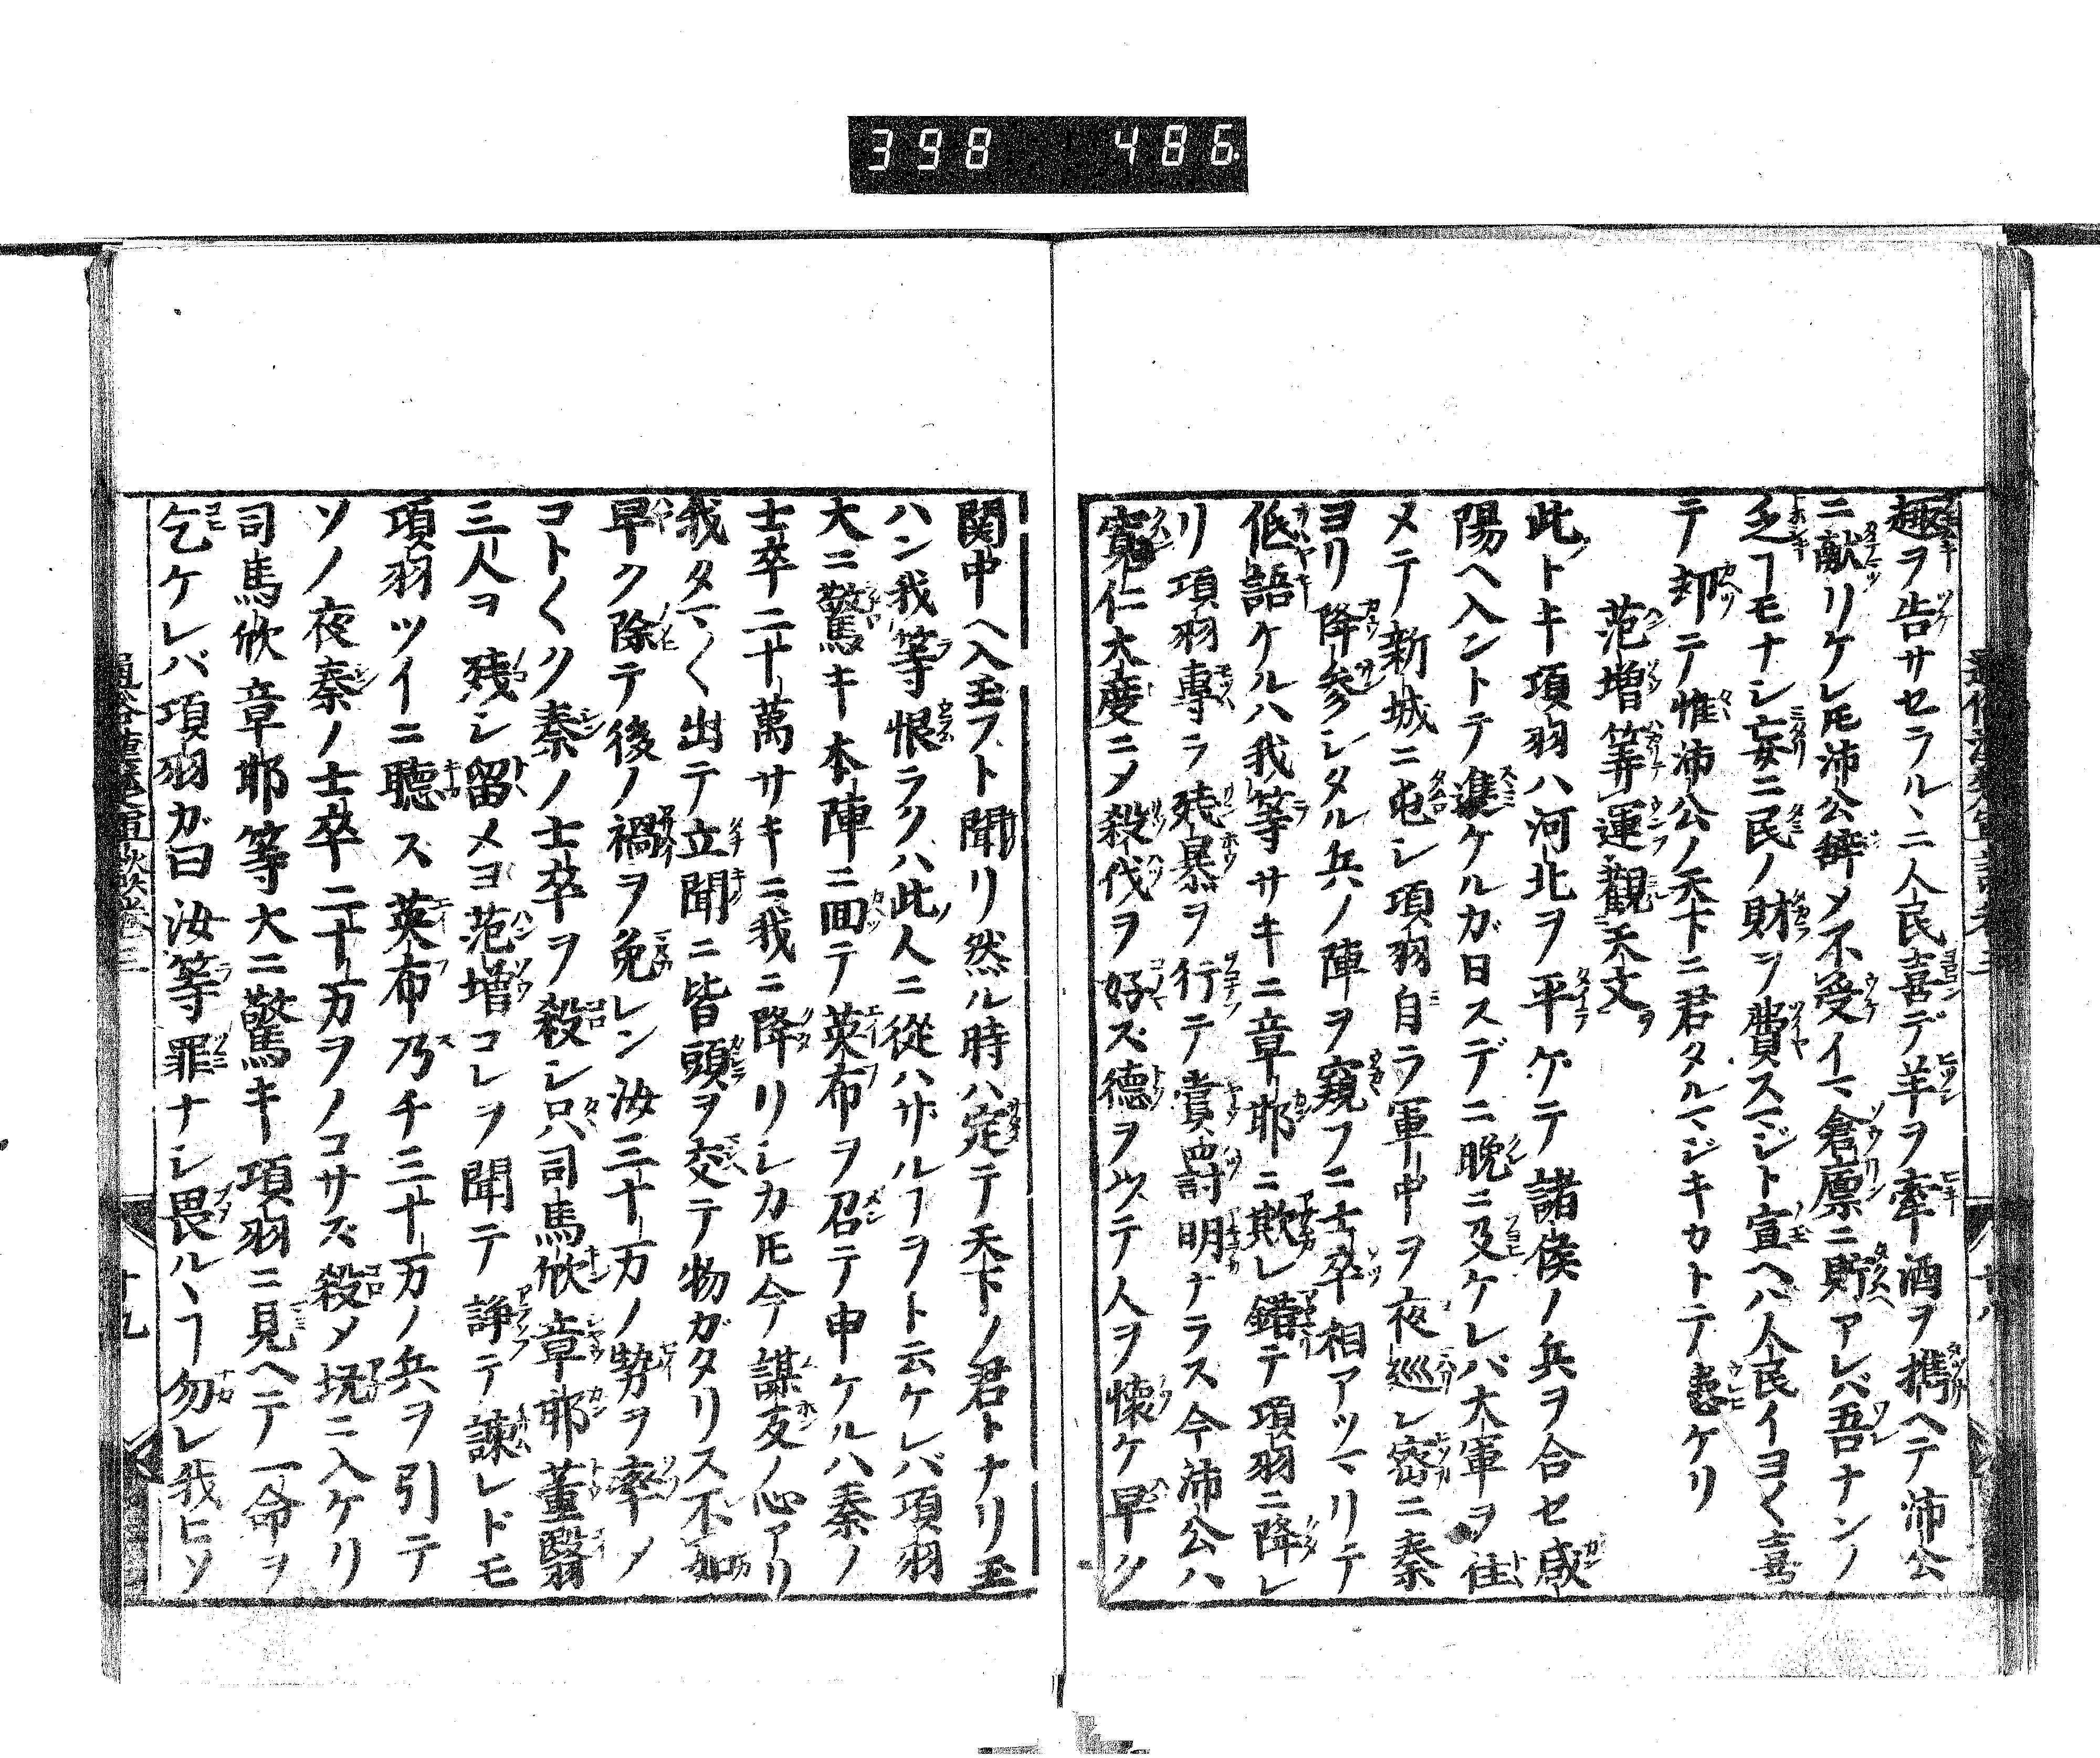 398 486.
趣ヲ告サセラルヽニ人民喜デ羊ヲ牽酒ヲ携ヘテ沛公
ニ獻リケレ𪜈沛公辭メ不受イマ倉廪ニ貯アレバ吾ナンノ
乏ヿモナシ妄ニ民ノ財ヲ費スマジト宣ヘハ人民イヨ〱喜
テ却テ惟沛公ノ天下ニ君タルマジキカトテ患ケリ
范増等運觀天文ヲ
此トキ項羽ハ河北ヲ平ケテ諸侯ノ兵ヲ合セ咸
陽ヘ入ントテ進ケルガ日スデニ晩ニ及ケレバ大軍ヲ住
メテ新城ニ屯シ項羽自ラ軍中ヲ夜巡シ密ニ秦
ヨリ降參シタル兵ノ陣ヲ窺フニ士卒相アツマリテ
低語ケルハ我等サキニ章邯ニ欺レ錯テ項羽ニ降レ
リ項羽專ラ残暴ヲ行テ賞罸明ナラス今沛公ハ
寛仁大度ニメ殺伐ヲ好ズ德ヲ以テ人ヲ懷ケ早ク
関中ヘ入玉フト聞リ然ル時ハ定テ天下ノ君トナリ玉
ハン我等恨ラクハ此人ニ從ハサルヿヲト云ケレバ項羽
大ニ驚キ本陣ニ回テ英布ヲ召テ申ケルハ秦ノ
士卒二十萬サキニ我ニ降リシカ𪜈今謀反ノ心アリ
我タマ〱出テ立聞ニ皆頭ヲ交テ物ガタリス不如
早ク除テ後ノ禍ヲ免レン汝三十万ノ勢ヲ率メ
コト〱ク秦ノ士卒ヲ殺シ只司馬欣章邯董翳
三人ヲ残シ留メヨ范増コレヲ聞テ諍テ諫レドモ
項羽ツイニ聽ス英布乃チ三十万ノ兵ヲ引テ
ソノ夜秦ノ士卒二十万ヲノコサズ殺メ坑ニ入ケリ
司馬欣章邯等大ニ驚キ項羽ニ見ヘテ一命ヲ
乞ケレバ項羽ガ曰汝等罪ナシ畏ルヽヿ勿レ我ヒソ
十九